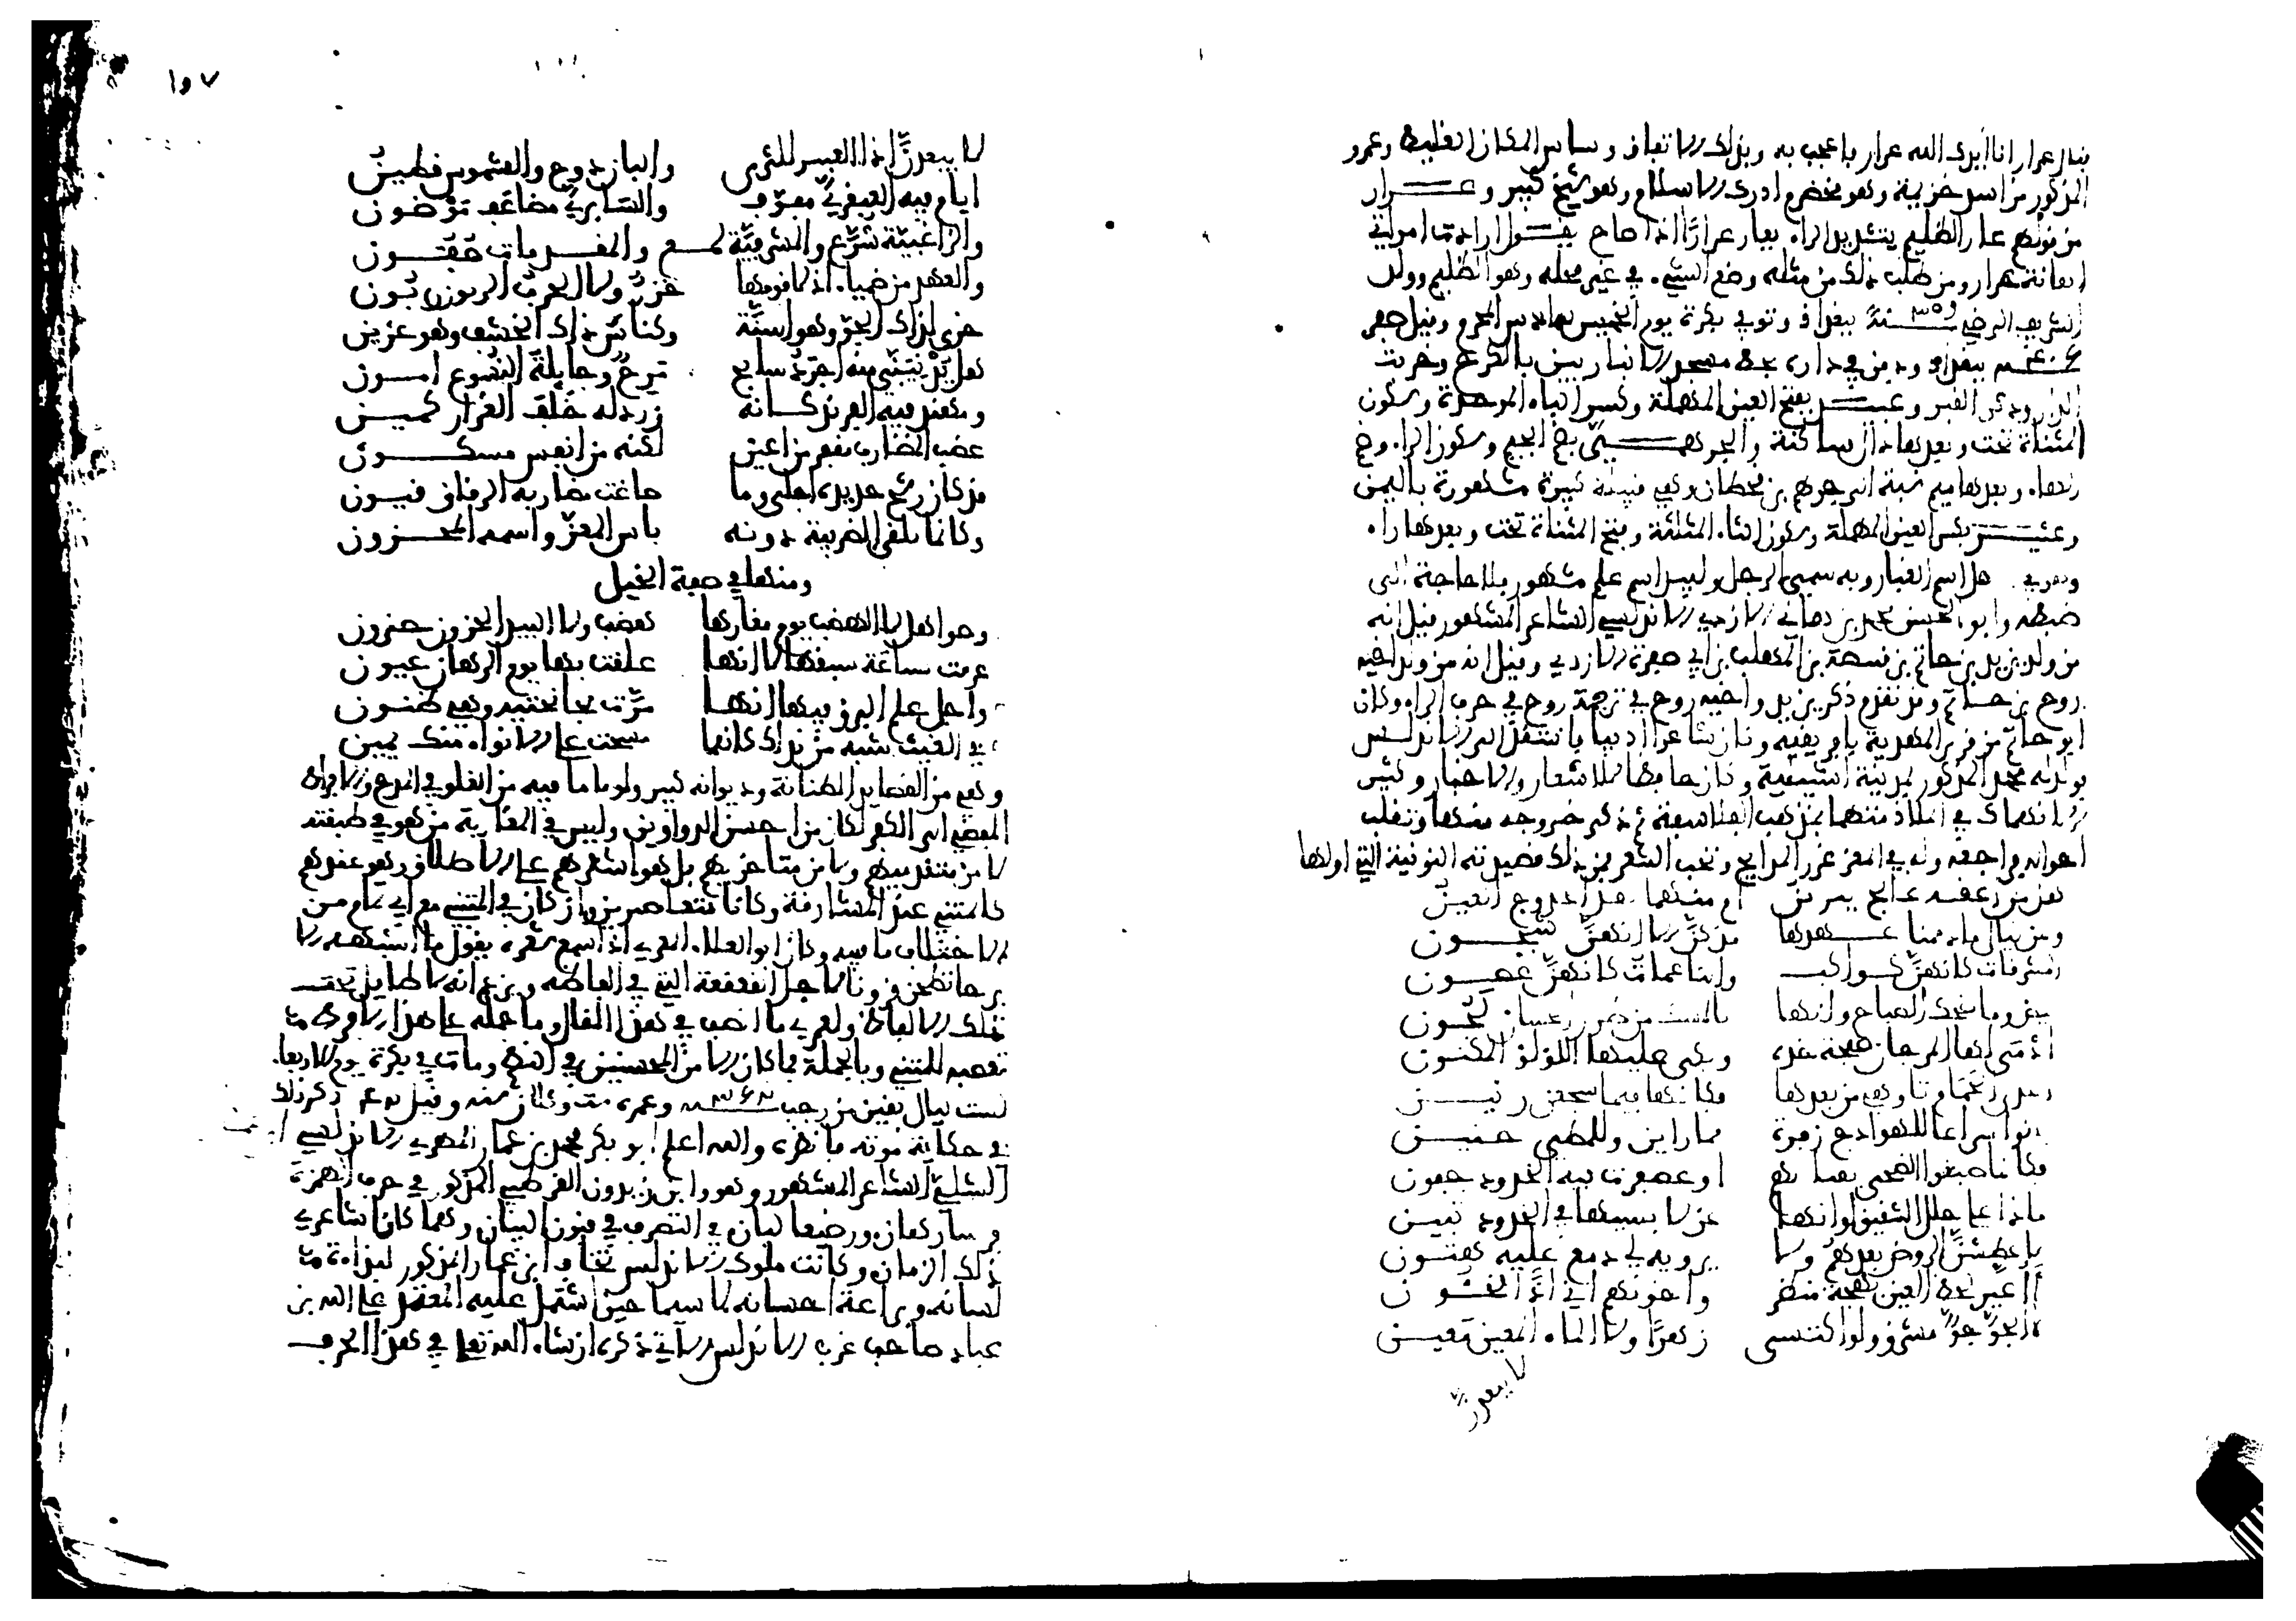 فقال عرار انا ايدك الله عرار فاعجب به وبذلك الاتفاق وساس المكان الغليظ وعمرو
المذكور من اسد خزيمة وهو مخضرم ادرك الاسلام وهو شيخ كبير وعرار
من قولهم عار الظليم بتشديد الراء يعار عرارا اذا صاح يقول ارادت امراتي
اهانة عرار ومن طلب ذلك من مثله وضع الشيء في غير محله وهو الظليم وولد
الشريف الرضي سنة ٣٥٩ ببغداد وتوفي بكرة يوم الخميس سادس المحرم وقيل صفر
سنة ٤٠٦ ببغداد ودفن في داره بخط مسجد الانباريين بالكرخ وخربت
الدار ودثر القبر وعبيد بفتح العين المهملة وكسر الباء الموحدة وسكون
المثناة تحت وبعدها دال ساكنة والجرهمي بضم الجيم وسكون الراء وضم
الهاء وبعدها ميم نسبة الى جرهم بن قحطان وهي قبيلة كبيرة مشهورة باليمن
وعثير بكسر العين المهملة وسكون الثاء المثلثة وفتح المثناة تحت وبعدها راء
وهو في الاصل اسم الغبار وبه سمي الرجل ولبيد اسم علم مشهور فلا حاجة الى
ضبطه وابو الحسن محمد بن هاني الازدي الاندلسي الشاعر المشهور قيل انه
من ولد يزيد بن حاتم بن قبيصة بن المهلب بن ابي صفرة الازدي وقيل انه من ولد اخيه
روح بن حاتم وقد تقدم ذكر يزيد واخيه روح في ترجمة روح في حرف الراء وكان
ابو حاتم من قرية المهدية بافريقية وكان شاعرا اديبا فانتقل الى الاندلس
فولد له محمد المذكور بمدينة اشبيلية وكان حافظا للاشعار والاخبار وكثير
الانهماك في الملاذ متهما بمذهب الفلاسفة ثم ذكر خروجه منها وتقلب
احواله فراجعه وله في المعز غرر المدايح ونخب الشعر فمن ذلك قصيدته النونية التي اولها
هل من اعقة عالج يبرين ام منهما بقر الحدوج العين
ولمن ليال ما ذممنا عهدها مذ كن الا انهن شجون
المشرقات كانهن كواكب والناعمات كانهن غصون
بيض وما ضحك الصباح وانها بالمسك من طرر الحسان لجون
ادمى لها المرجان صفحة خده وبكى عليها اللؤلؤ المكنون
اعدى الحمام تاوهي من بعدها فكانها فيما سجعن رنين
بانوا سراعا للهوادج زفرة مما راين وللمطي حنين
فكانما صبغوا الضحى بقبابهم او عصفرت فيه الخدود جفون
ماذا على حلل الشقيق لو انها عن لابسيها في الخدود تبين
لاعطشن الروض بعدهم ولا يرويه لي دمع عليه هتون
أاعير لحظ العين بهجة منظر واخونهم اني اذا لخئون
لا الجو جو مشرق ولو اكتسى زهرا ولا الماء المعين معين
لا يبعدن
لا يبعدن اذ العبير له ثرى والبان دوح والشموس قطين
ايام فيه العبقري مفوف والسابري مضاعف موضون
والزاعبية شرع والمشرفية لمع والمقربات صفون
والعهد من ظمياء اذ لا قومها خزر ولا الحرب الزبون زبون
حزني لذاك الجو وهو اسنة وكناس ذاك الخشف وهو عرين
هل يدنيني منه اجرد سابح مرح وجائلة النسوع امون
ومهند فيه الفرند كانه زرد له خلف الغرار كمين
عضب المضارب مقفر من اعين لكنه من انفس مسكون
قد كان رشح حديده اجلى وما صاغت مضاربه الرقاق قيون
وكانما يلقى الضريبة دونه باس المعز واسمه المخزون
ومنها في صفة الخيل
وصواهل لا الهضب يوم مغارها هضب ولا البيد الحزون حزون
عرفت بساعة سبقها لا انها علقت بها يوم الرهان عيون
واجل علم البرق فيها انها مرت بجانحتيه وهي ظنون
في الغيث شبه من نداك كانما مسحت على الانواء منك يمين
وهي من القصايد الطنانة وديوانه كبير ولولا ما فيه من الغلو في المدح والافراط
المفضي الى الكفر لكان من احسن الدواوين وليس في المغاربة من هو في طبقته
لا من متقدميهم ولا من متاخريهم بل هو اشعرهم على الاطلاق وهو عندهم
كالمتنبي عند المشارقة وكانا متعاصرين وان كان في المتنبي مع ابي تمام من
الاختلاف ما فيه وكان ابو العلاء المعري اذا سمع شعره يقول ما اشبهه الا
برحا تطحن قرونا لاجل القعقعة التي في الفاظه ويزعم انه لا طايل تحت
تلك الالفاظ ولعمري ما انصف في هذا المقال وما حمله على هذا الا فرط
تعصبه للمتنبي وبالجملة فما كان الا من المحسنين في النظم ومات في بكرة يوم الاربعاء
لست ليال بقين من رجب سنة ٣٦٢ وعمره ست وثلاثون سنة وقيل ٤٢ ذكر ذلك
في حكاية موته فانظره والله اعلم ابو بكر محمد بن عمار المهري الاندلسي
الشلبي الشاعر المشهور وهو وابن زيدون القرطبي المذكور في حرف الهمزة
فرسا رهان ورضيعا لبان في التصرف في فنون البيان وهما كانا شاعري
ذلك الزمان وكانت ملوك الاندلس تخاف ابن عمار المذكور لبذاءة
لسانه وبراعة احسانه لا سيما حين اشتمل عليه المعتمد على الله بن
عباد صاحب غرب الاندلس الآتي ذكره ان شاء الله تعالى في هذا الحرف